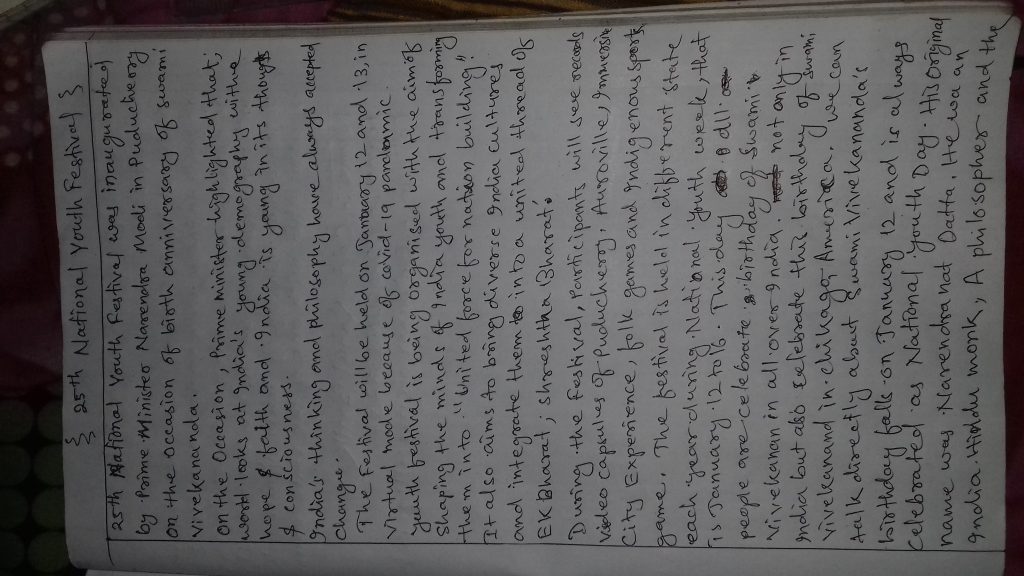 { 25th National Youth Festival }
25th National Youth Festival was inaugurated
by Prime Minister Narendra Modi in Puducherry
on the occasion of birth anniversary of swami
Vivekananda.
On the Occasion, Prime minister highlighted that;
world looks at India's young demography with a
hope & faith and India is young in its thougts
& consciousness.
India's thinking and philosophy have always accepted
change.
The Festival will be held on January 12 and 13, in
virtual mode because of covid-19 pandemic.
youth festival is being organised with the aim of
Shaping the minds of India youth and transforming
them into "United force for nation building".
It also aims to bring diverse India cultures
and integrate them into a united thread of
EK Bharat; Shrestha Bharat.
During the Festival, Participants will see reads
Video capsules of Puducherry, Auroville, Immersive
City Experience, folk games and Indigenous sports
game. The festival is held in different state
each year during National Youth week, that
is January 12 to 16. This day dll
people are celebrate birthday of Swami
Vivekanan in all over India. not only in
India but also selebrate this birthday of swami
vivekanand in chikago America. we can
talk directly about Swami Vivekananda's
birthday falls on January 12 and is always
Celebrated as National Youth Day His Original
name was Narendra nat Datta. He wa an
India Hindu monk, A philosopher and the